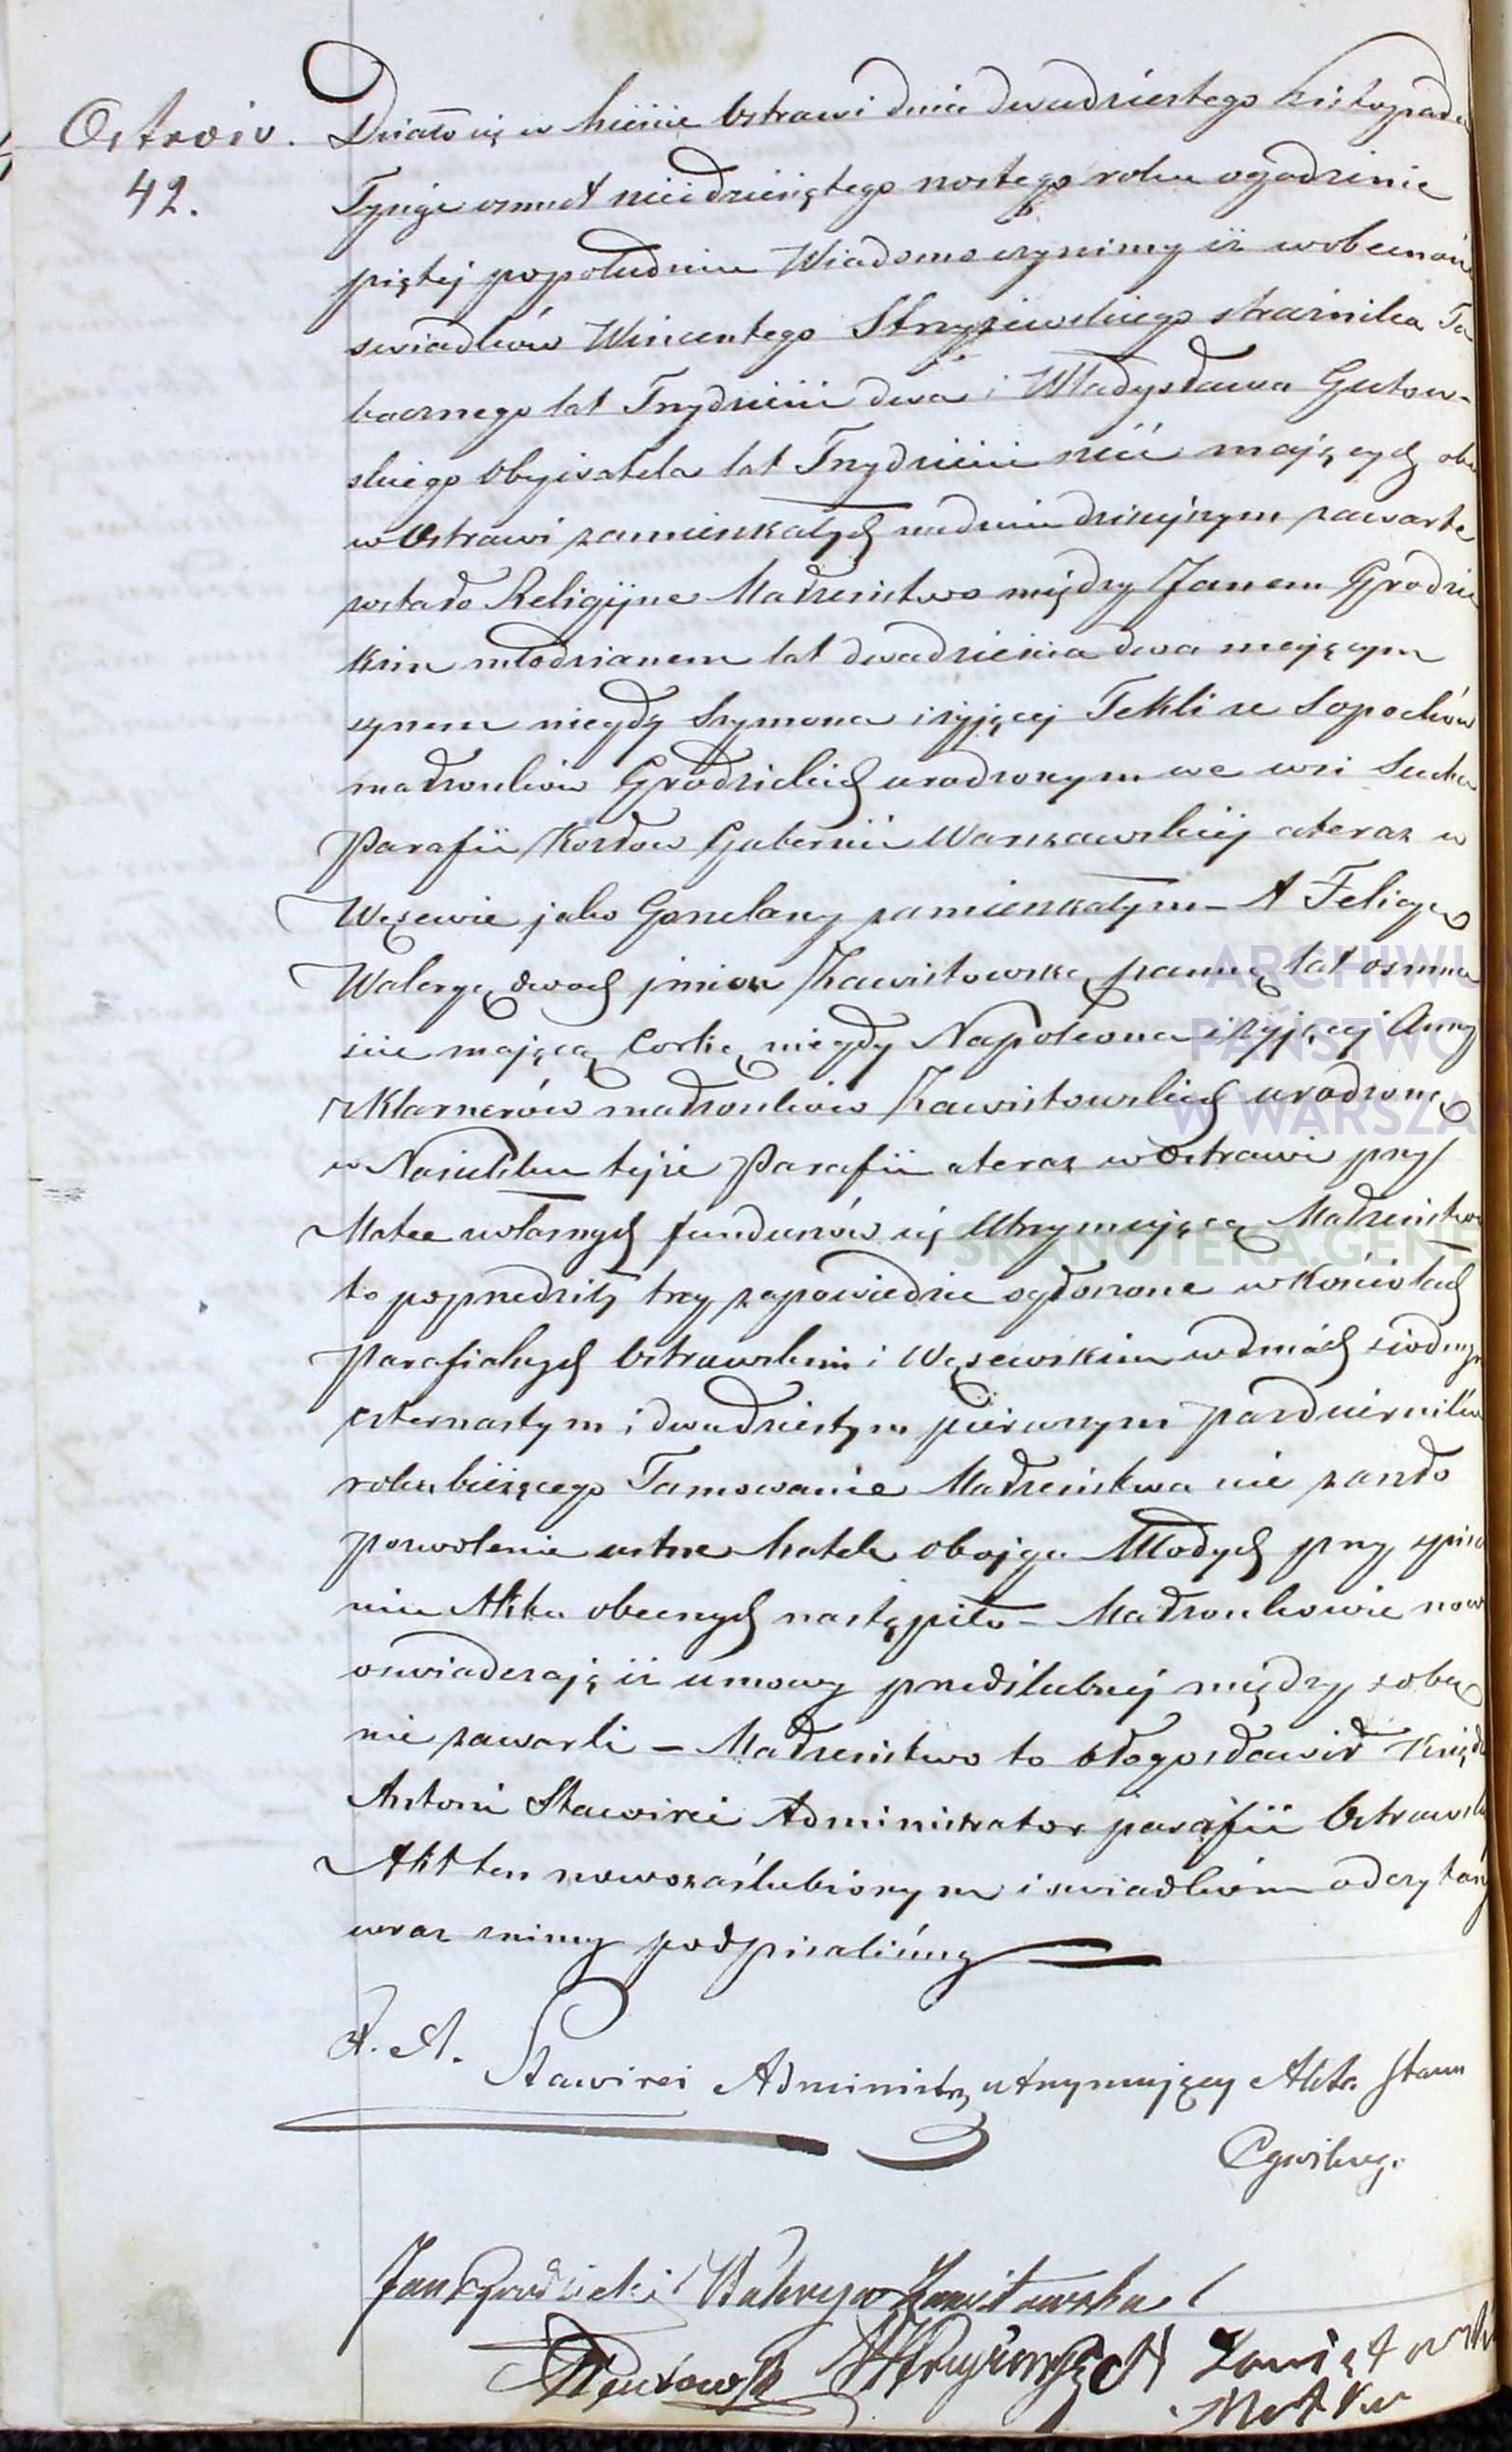 Ostrów.
42.
Działo się w Mieście Ostrowi dnia dwudziestego Listopada
Tysiąc osmset sześcdziesiątego szostego roku o godzinie
piątej popołudniu Wiadomo czynimy iż w obecności
swiadków Wincentego Stryżewskiego strażnika Ta
bacznego lat Trzydzieści dwa i Władysława Gutow-
skiego Obywatela lat Trzydzieści sześć mających obu
w Ostrowi zamieszkałych na dniu dzisiejszym zawarte
zostało Religijne Małżeństwo między Janem Grodzic
kim młodzianem lat dwadzieścia dwa mającym
synem niegdy Szymona i żyjącej Tekli ze Sopoćków
małżonków Grodzickich urodzonym we wsi Sucha
Parafii Kozłow Gubernii Warszawskiej a teraz w
Wąsewie jako Gorzelany zamieszkałym – A Felicyą
Waleryą dwoch imion Zawistowską panną lat osmna
ście mającą Corką niegdy Napoleona i żyjącej Anny
z Klarnerów małżonków Zawistowskich urodzoną
w Nasielsku tejże Parafii a teraz w Ostrowi przy
Matce z własnych funduszów się utrzymującą Małżeństwo
to poprzedziły trzy zapowiedzie ogłoszone w Kościołach
parafialnych Ostrowskim i Wąsewskim w dniach siodmym
czternastym i dwudziestym pierwszym Pazdziernika
roku bieżącego Tamowanie Małżeństwa nie zaszło
pozwolenie ustne Matek obojga Młodych przy spisa
niu Aktu obecnych nastąpiło – Małżonkowie nowi
oswiadczają iż umowy przedślubnej między sobą
nie zawarli – Małżeństwo to błogosławił Ksiądz
Antoni Stawirei Administrator parafii Ostrowsk
Akt ten nowozaślubionym i swiadkom odczytany
wraz z nimi podpisaliśmy
X. A. Stawirei Administr. utrzymujący Akta Stanu
Cywilnego
Jan Grodzicki Walerya Zawistowska
Gutowski WStryżewski Zawistowska
Matka
ARCHIWU
PAŃSTWO
W WARSZA
SKANOTEKA.GENE